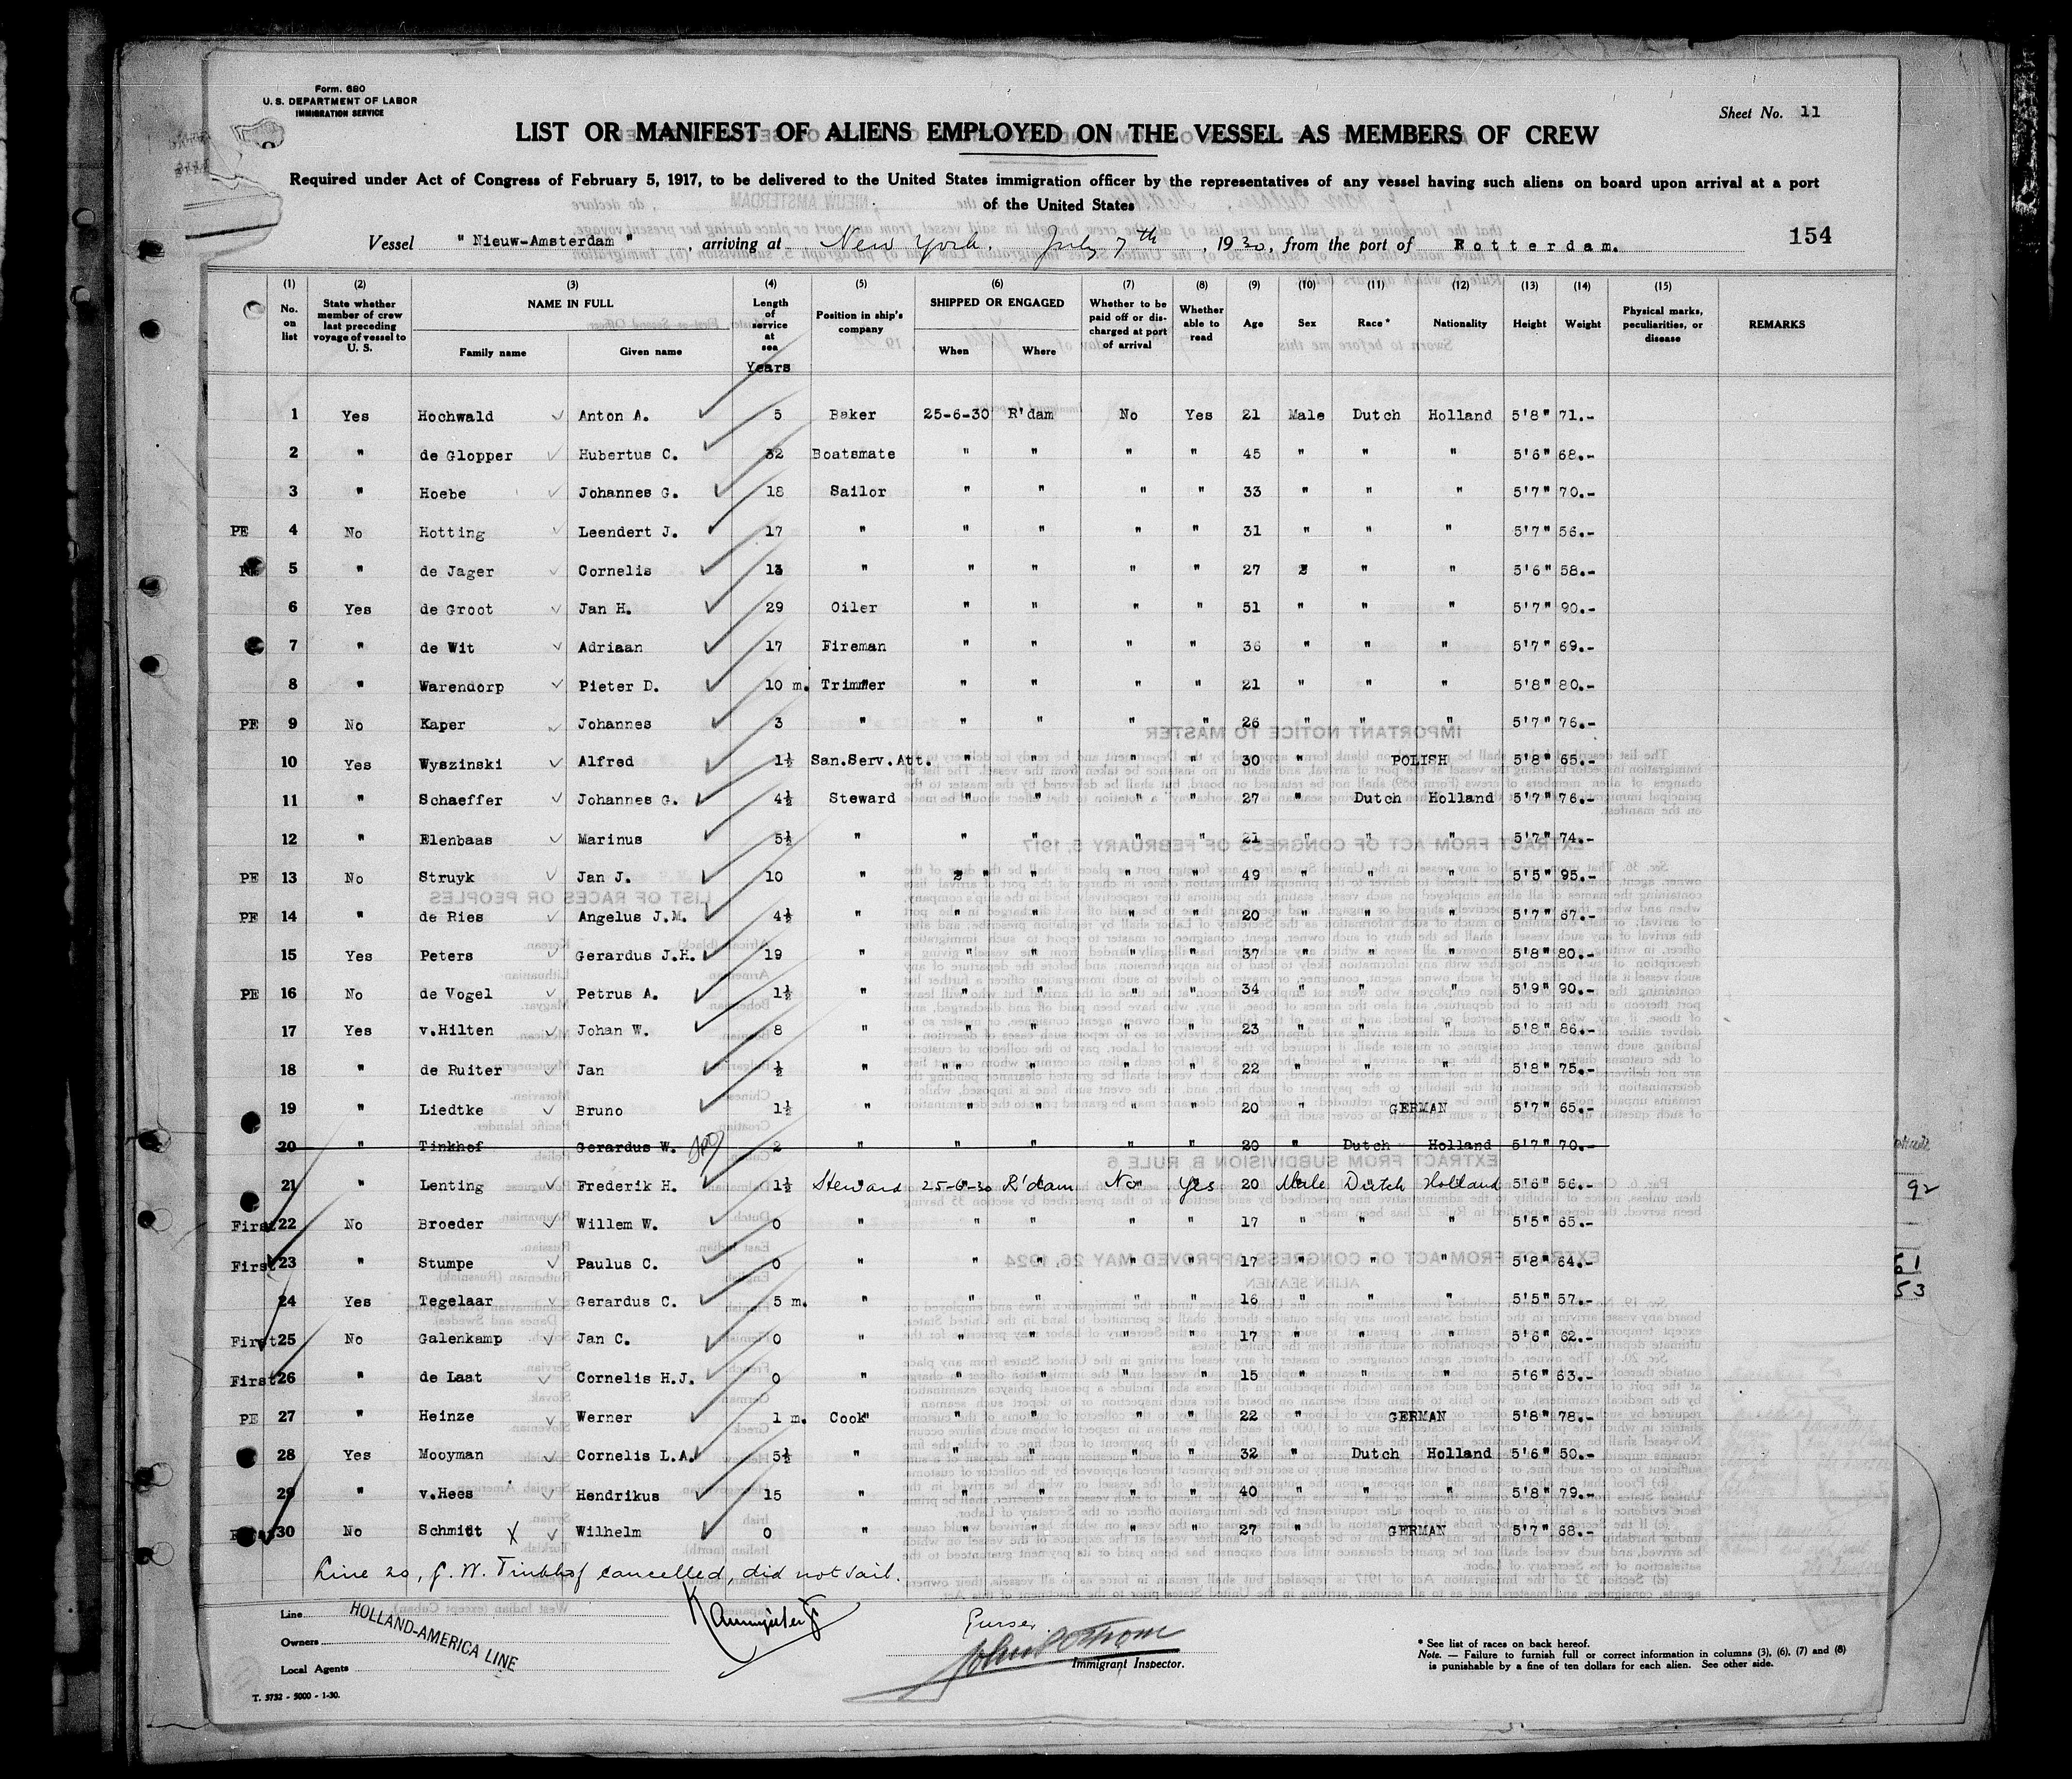 Form. 680
U. S. DEPARTMENT OF LABOR
IMMIGRATION SERVICE
Sheet No. 11
LIST OR MANIFEST OF ALIENS EMPLOYED ON THE VESSEL AS MEMBERS OF CREW
Required under Act of Congress of February 5, 1917, to be delivered to the United States immigration officer by the representatives of any vessel having such aliens on board upon arrival at a port
of the United States
Vessel " Nieuw-Amsterdam " , arriving at New York. July 7th , 1930, from the port of Rotterdam. 154
(1) No. on list (2) State whether member of crew last preceding voyage of vessel to U. S. (3) NAME IN FULL Family name Given name (4) Length of service at sea Years (5) Position in ship's company (6) SHIPPED OR ENGAGED When Where (7) Whether to be paid off or discharged at port of arrival (8) Whether able to read (9) Age (10) Sex (11) Race* (12) Nationality (13) Height (14) Weight (15) Physical marks, peculiarities, or disease REMARKS
1 Yes Hochwald Anton A. 5 Baker 25-6-30 R'dam No Yes 21 Male Dutch Holland 5'8" 71.-
2 " de Glopper Hubertus C. 32 Boatsmate " " " " 45 " " " 5'6" 68.-
3 " Hoebe Johannes G. 18 Sailor " " " " 33 " " " 5'7" 70.-
PE 4 No Hotting Leendert J. 17 " " " " " 31 " " " 5'7" 56.-
5 " de Jager Cornelis 13 " " " " " 27 " " 5'6" 58.-
6 Yes de Groot Jan H. 29 Oiler " " " " 51 " " " 5'7" 90.-
7 " de Wit Adriaan 17 Fireman " " " " 36 " " " 5'7" 69.-
8 " Warendorp Pieter D. 10 m. Trimmer " " " " 21 " " " 5'8" 80.-
PE 9 No Kaper Johannes 3 " " " " " 26 " " " 5'7" 76.-
10 Yes Wyszinski Alfred 1½ San.Serv.Att. " " " " 30 " POLISH 5'8" 65.-
11 " Schaeffer Johannes G. 4½ Steward " " " " 27 " Dutch Holland 5'7" 76.-
12 " Elenbaas Marinus 5½ " " " " " 21 " " " 5'7" 74.-
PE 13 No Struyk Jan J. 10 " " " " " 49 " " " 5'5" 95.-
PE 14 " de Ries Angelus J.M. 4½ " " " " " 20 " " " 5'7" 67.-
15 Yes Peters Gerardus J.H. 19 " " " " " 37 " " " 5'8" 80.-
PE 16 No de Vogel Petrus A. 1½ " " " " " 34 " " " 5'9" 90.-
17 Yes v.Hilten Johan W. 8 " " " " " 23 " " " 5'8" 86.-
18 " de Ruiter Jan ½ " " " " " " 22 " " " 5'8" 75.-
19 " Liedtke Bruno 1½ " " " " " 20 " GERMAN 5'7" 65.-
20 " Tinkhof Gerardus W. 2 " " " " " 20 " Dutch Holland 5'7" 70.-
21 " Lenting Frederik H. 1½ Steward 25-6-30 R'dam No Yes 20 Male Dutch Holland 5'6" 56.- 92
First 22 No Broeder Willem W. 0 " " " " " 17 " " " 5'5" 65.-
First 23 " Stumpe Paulus C. 0 " " " " " 17 " " " 5'8" 64.- 61
24 Yes Tegelaar Gerardus C. 5 m. " " " " " 16 " " " 5'5" 57.- 53
First 25 No Galenkamp Jan C. 0 " " " " " 17 " " " 5'6" 62.-
First 26 " de Laat Cornelis H.J. 0 " " " " " 15 " " " 5'6" 63.-
PE 27 " Heinze Werner 1 m. Cook " " " " " 22 " GERMAN 5'8" 78.-
28 Yes Mooyman Cornelis L.A. 5½ " " " " " 32 " Dutch Holland 5'6" 50.-
29 " v.Hees Hendrikus 15 " " " " " 40 " " " 5'8" 79.-
30 No Schmidt X Wilhelm 0 " " " " " 27 " GERMAN 5'7" 68.-
Line 20, G. W. Tinkhof cancelled, did not sail.
Line HOLLAND-AMERICA LINE
Owners
Local Agents
Purser.
Immigrant Inspector.
* See list of races on back hereof.
Note. — Failure to furnish full or correct information in columns (3), (6), (7) and (8)
is punishable by a fine of ten dollars for each alien. See other side.
T. 3732 - 5000 - 1-30.